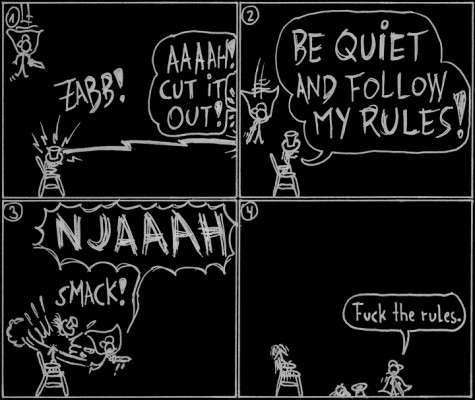 1
ZABB!
AAAAH!
CUT iT
OUT!
2
BE QUiET
AND FOLLOW
MY RULES!
3
NJAAAH
SMACK!
4
Fuck the rules.